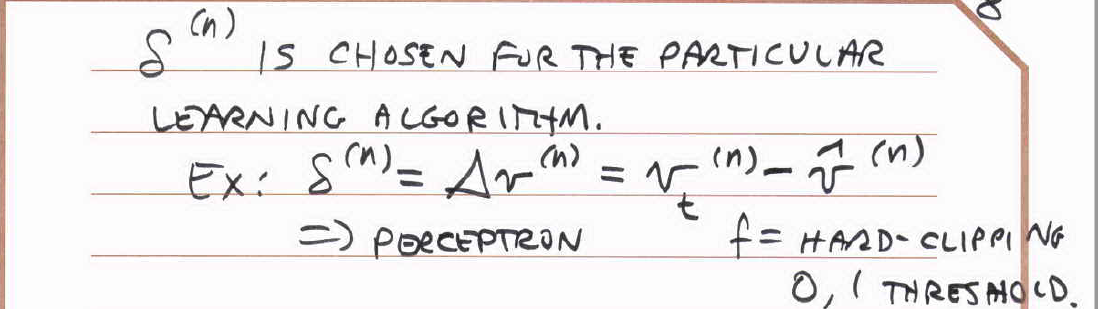 8
δ^(n) IS CHOSEN FOR THE PARTICULAR
LEARNING ALGORITHM.
Ex: δ^(n) = Δv^(n) = v_t^(n) - v̂^(n)
=> PERCEPTRON f = HARD-CLIPPING
0, 1 THRESHOLD.